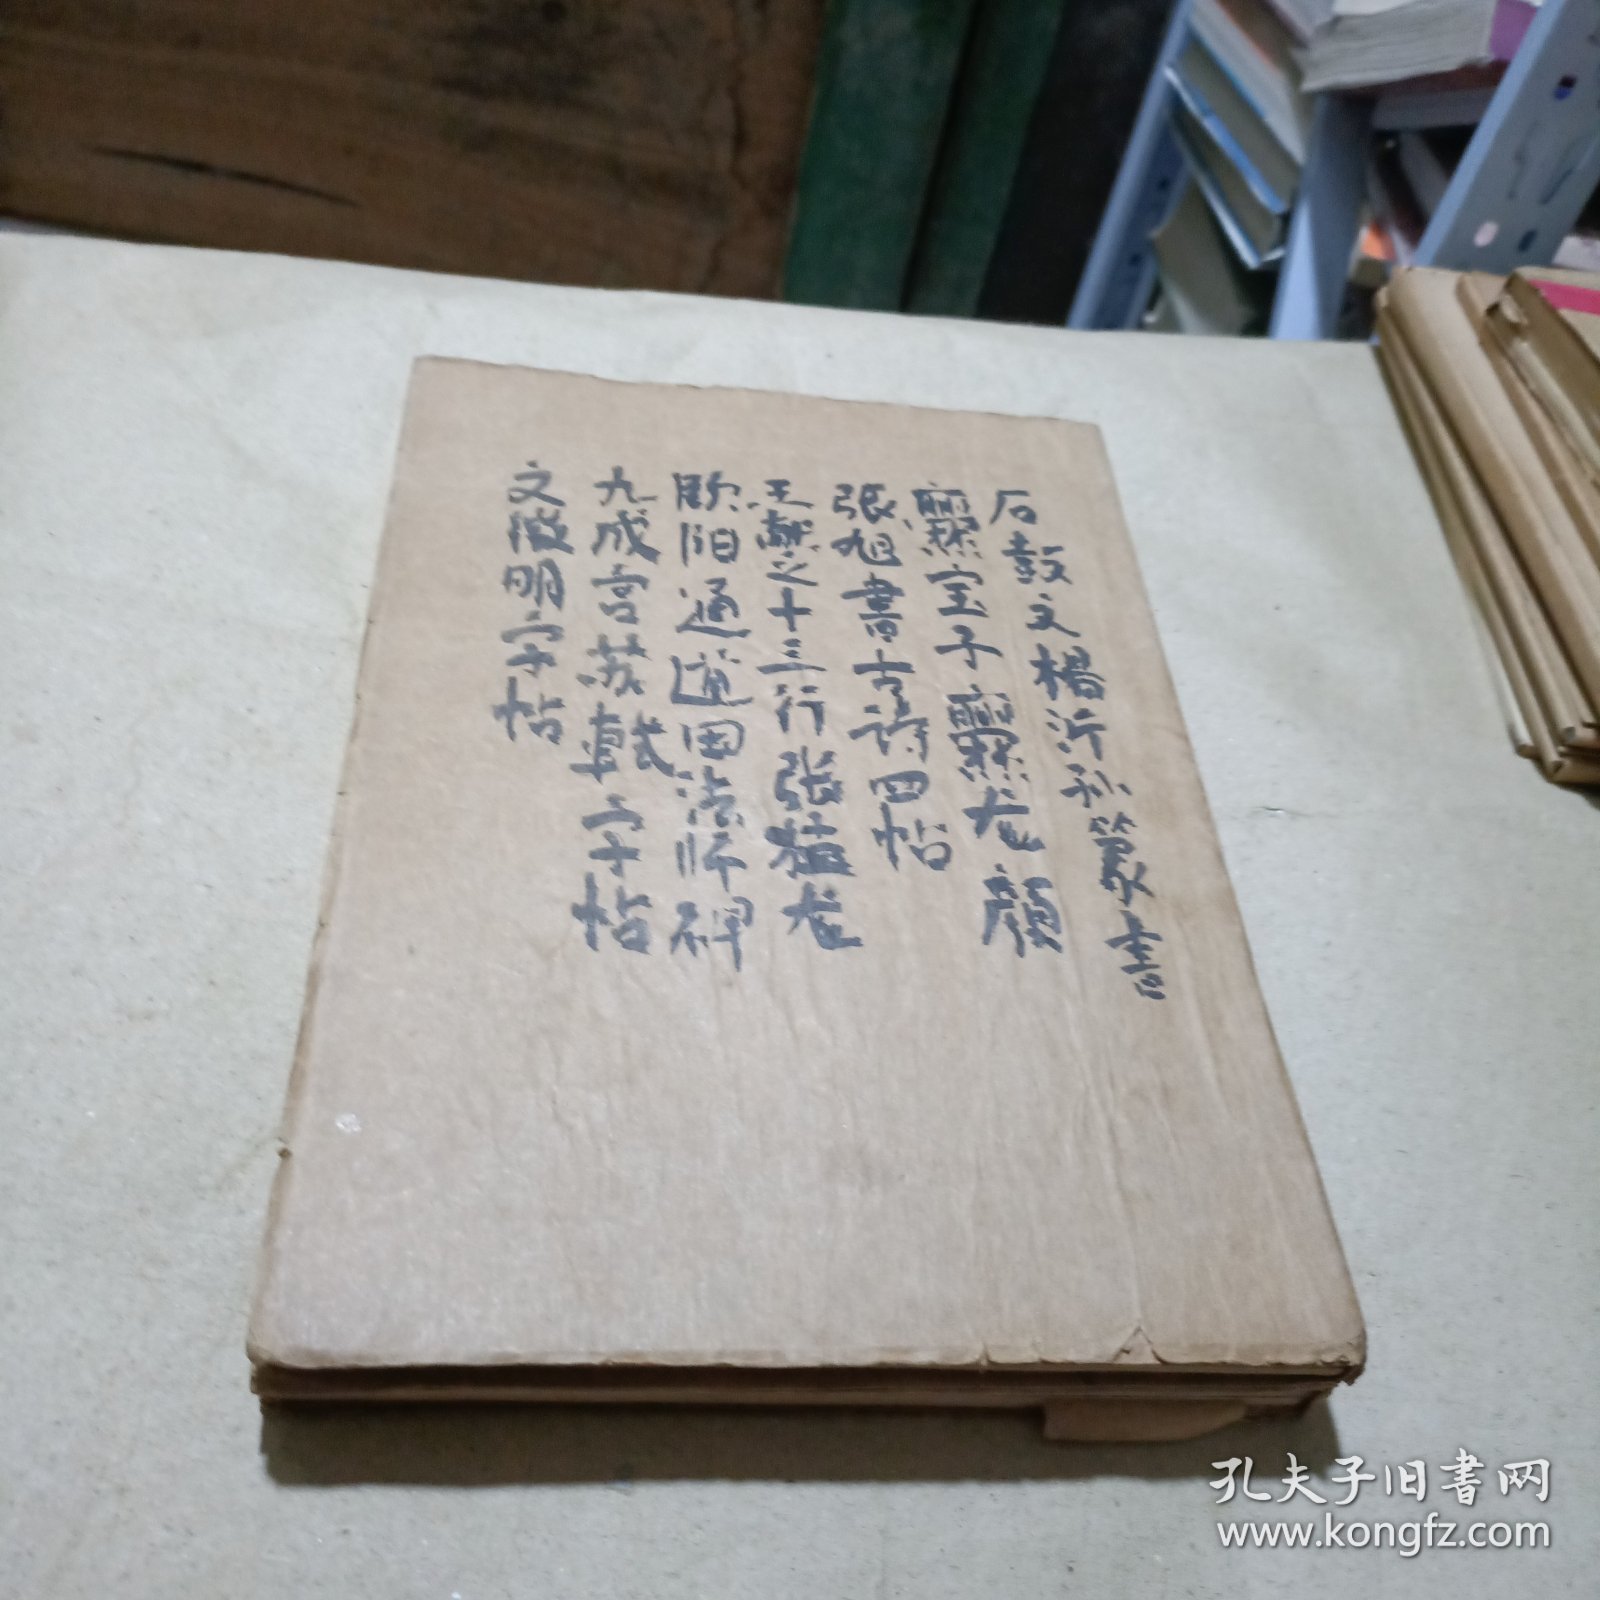 石鼓文楊沂孙篆書
爨宝子爨龙顔
張旭書古詩四帖
王献之十三行张猛龙
欧阳通道因法师碑
九成宫苏軾字帖
文徵明字帖
孔夫子旧书网
www.kongfz.com